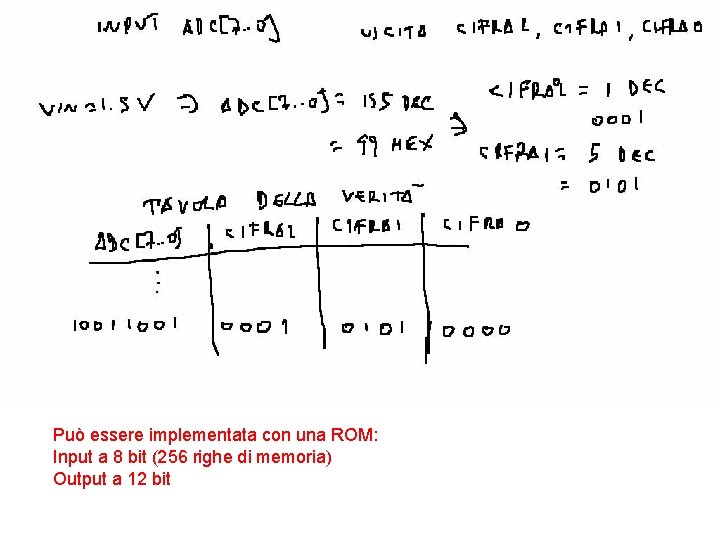 INPUT ADC[7..0] USCITA CIFRA2, CIFRA1, CIFRA0
VIN=1.5V ⇒ ADC[7..0] = 155 DEC
= 99 HEX
⇒
CIFRA2 = 1 DEC
0001
CIFRA1 = 5 DEC
= 0101
TAVOLA DELLA VERITA'
ADC[7..0] CIFRA2 CIFRA1 CIFRA0
⋮
10011001 0001 0101 0000
Può essere implementata con una ROM:
Input a 8 bit (256 righe di memoria)
Output a 12 bit